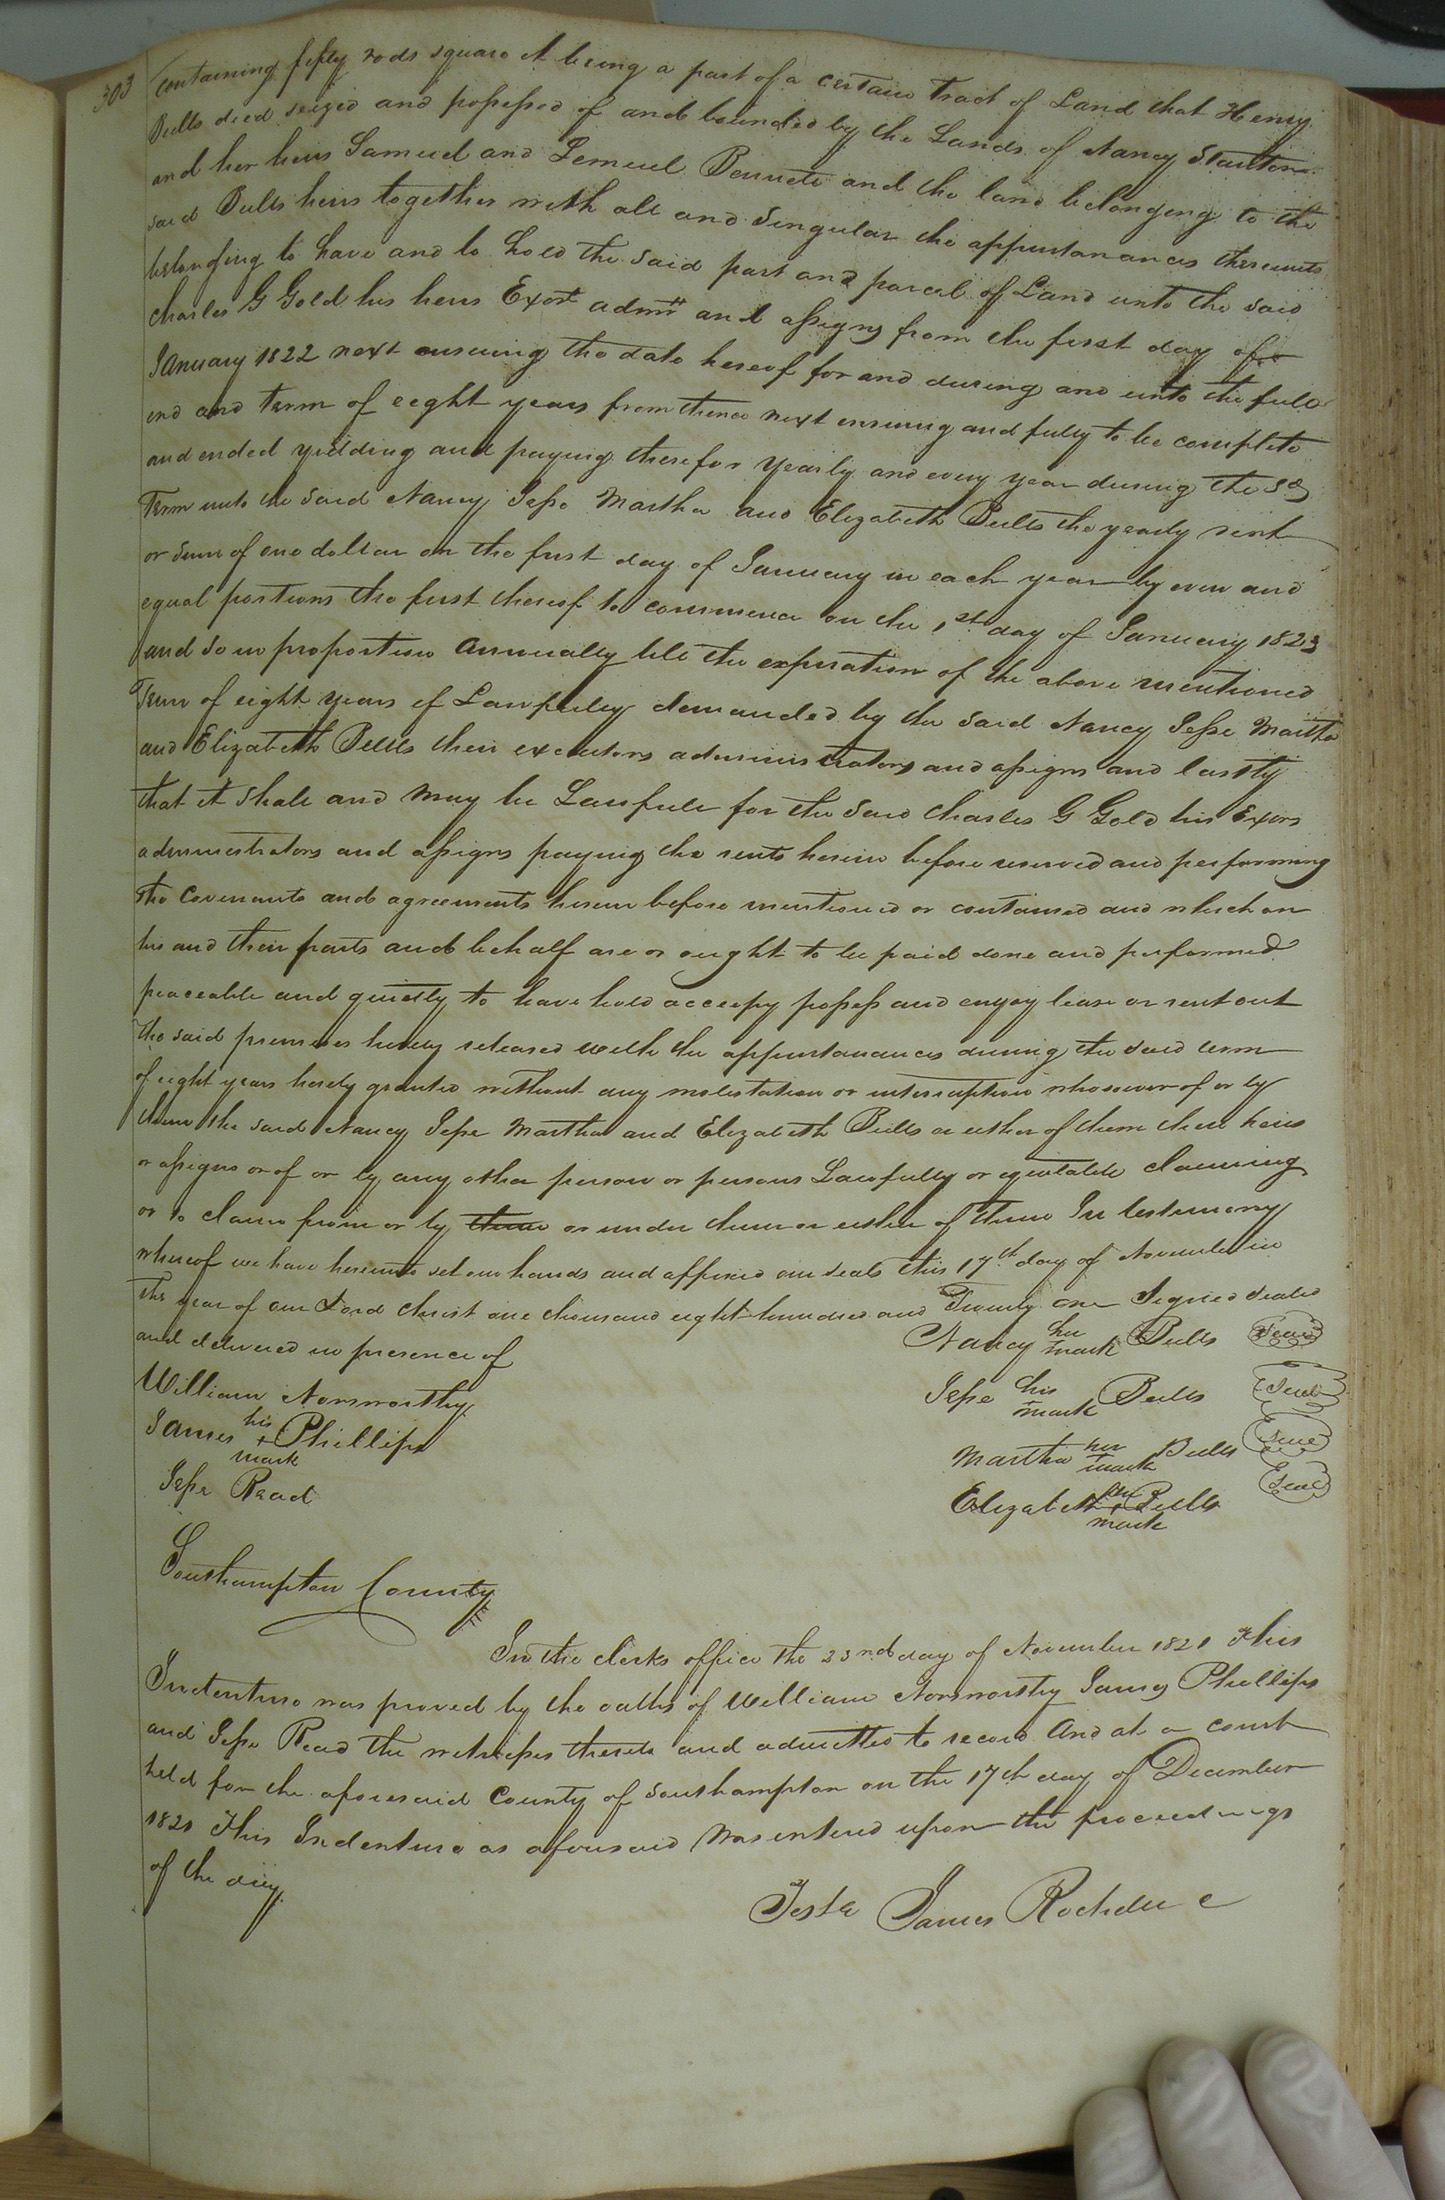 303
containing fifty rods square it being a part of a certain tract of Land that Henry
Bells died seized and possessed of and bounded by the Lands of Nancy Stanton
and her heirs Samuel and Lemuel Bennett and the land belonging to the
said Bells heirs together with all and Singular the appurtanances thereunto
belonging to have and to hold the said part and parcel of Land unto the said
Charles G Gold his heirs Exors admrs and assigns from the first day of
January 1822 next ensuing the date hereof for and during and unto the full
end and term of eight years from thence next ensuing and fully to be complete
and ended yielding and paying therefor yearly and every year during the sd
Term unto the said Nancy Jesse Martha and Elizabeth Bells the yearly rent
or sum of one dollar on the first day of January in each year by even and
equal portions the first thereof to commence on the 1st day of January 1823
and so in proportion annually till the expiration of the above mentioned
Term of eight years if Lawfully demanded by the said Nancy Jesse Martha
and Elizabeth Bells their executors administrators and assigns and lastly
that it shall and may be Lawfull for the said Charles G Gold his Exors
administrators and assigns paying the rents herein before reserved and performing
the Covenants and agreements herein before mentioned or contained and which on
his and their parts and behalf are or ought to be paid done and performed
peaceable and quietly to have hold occupy possess and enjoy lease or rent out
the said premises hereby released with the appurtanances during the said term
of eight years hereby granted without any molestation or interruption whosoever of or by
them the said Nancy Jesse Martha and Elizabeth Bells or either of them their heirs
or assigns or of or by any other person or persons Lawfully or equitable claiming
or to claim from or by them or under them or either of them In testimony
whereof we have hereunto set our hands and affixed our seals this 17th day of November in
The year of our Lord Christ one thousand eight hundred and Twenty one Signed sealed
and delivered in presence of
Nancy her mark Bells Seal
William Norsworthy
Jesse his mark Bells Seal
James his + mark Phillips
Martha her mark Bells Seal
Jesse Read
Elizabeth her + mark Bells Seal
Southampton County
In the clerks office the 23rd day of November 1821 This
Indenture was proved by the oaths of William Norsworthy James Phillips
and Jesse Read the witnesses thereto and admitted to record And at a court
held for the aforesaid County of Southampton on the 17th day of December
1821 This Indenture as aforesaid was entered upon the proceedings
of the day.
Teste James Rochelle C